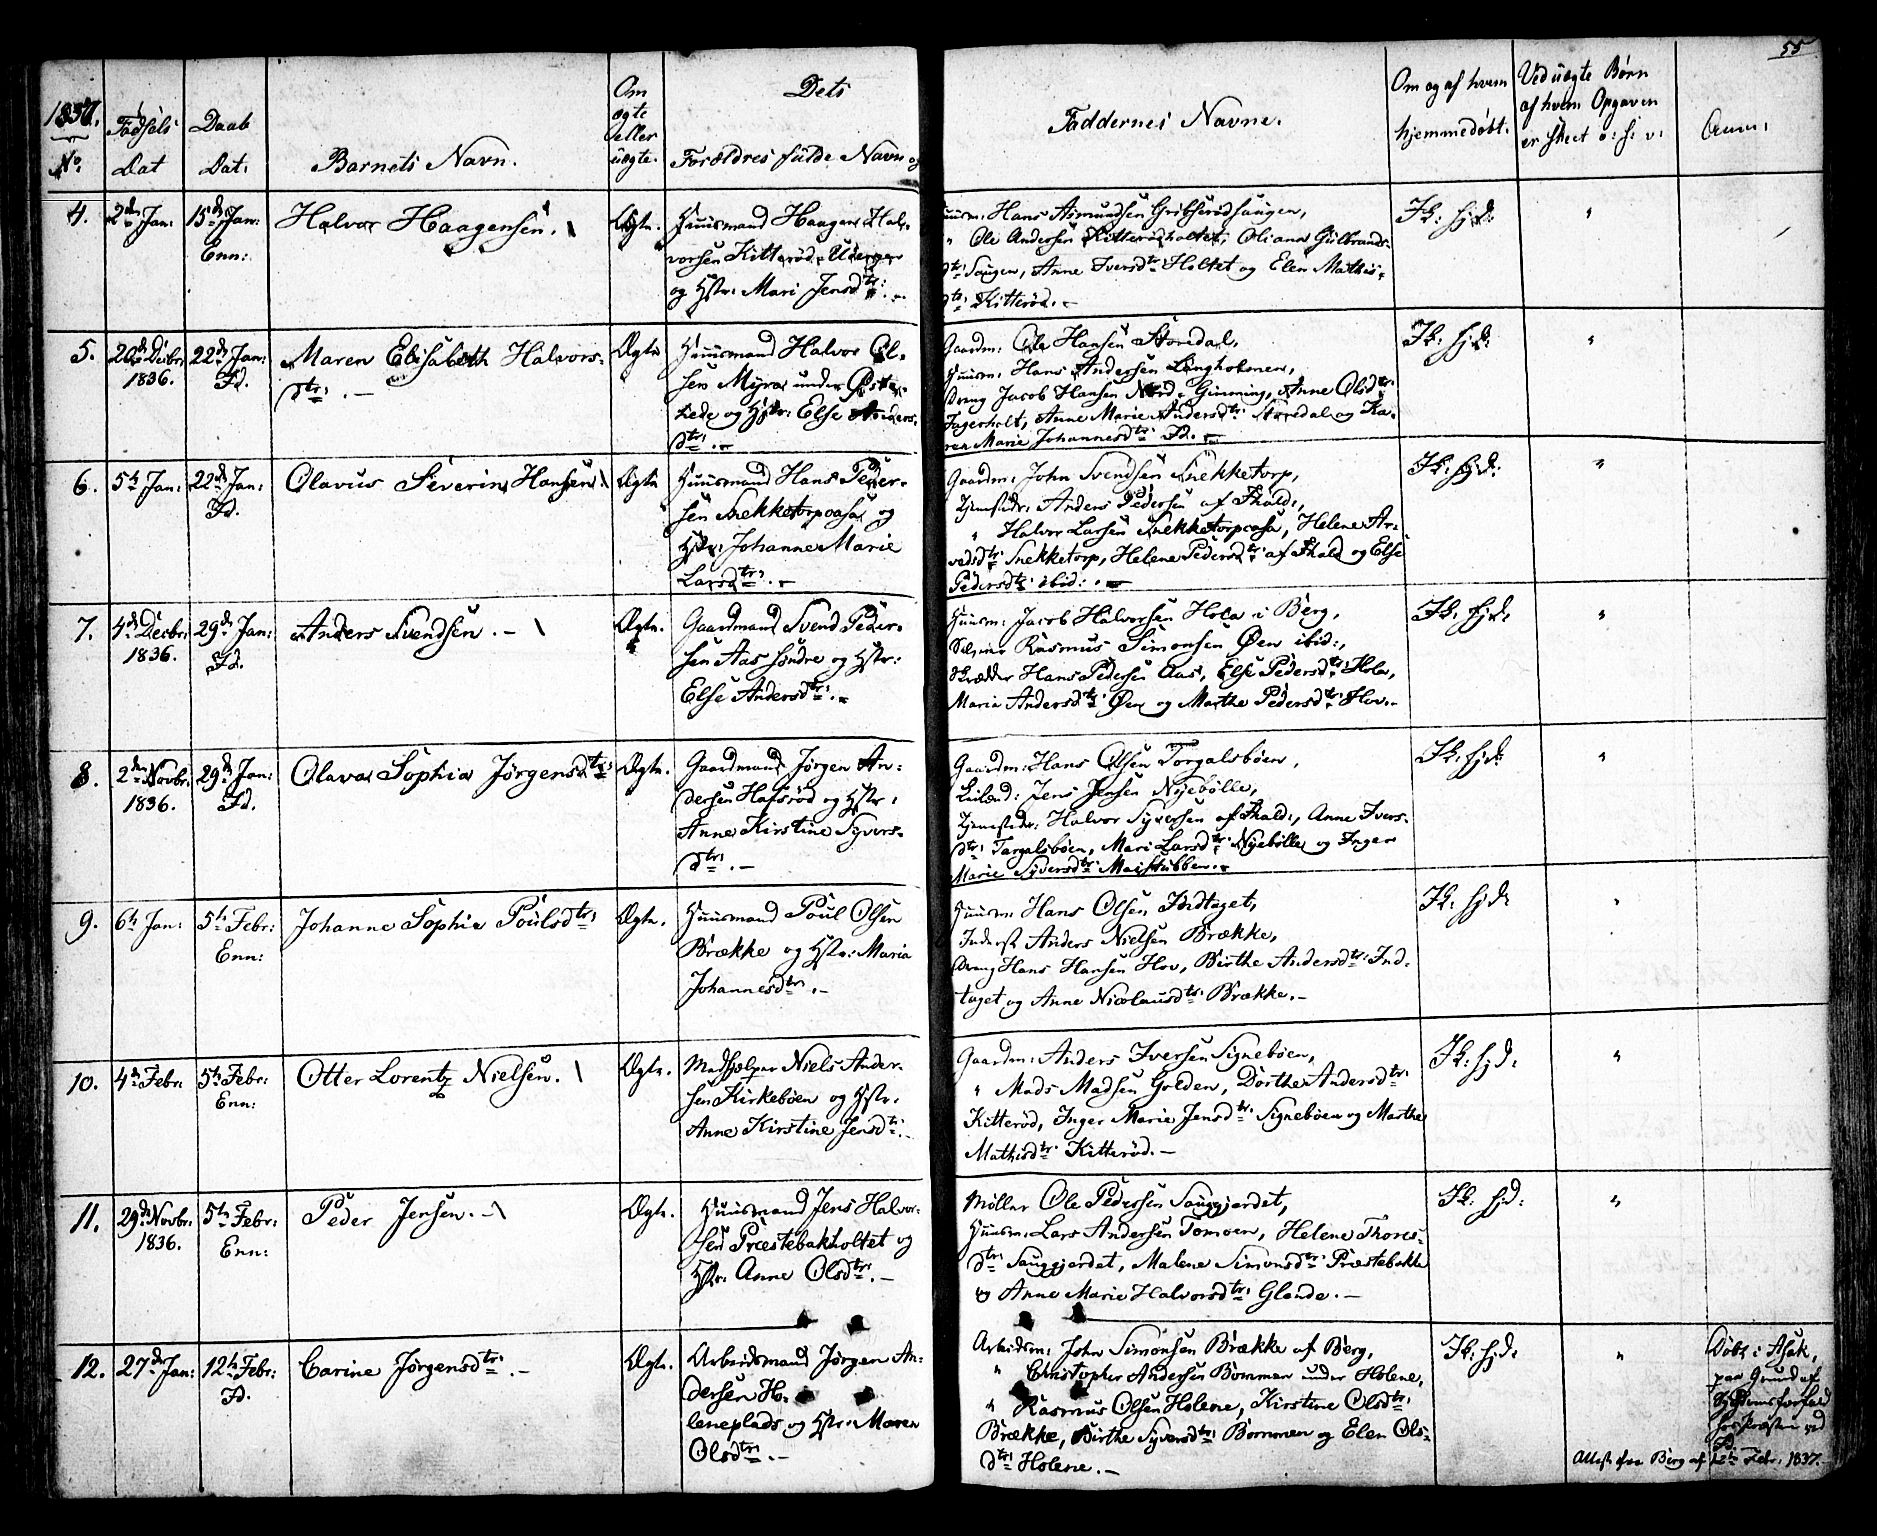 55
1837.
No
Fødsels Dat
Daab Dat:
Barnets Navn.
Om ægte eller uægte.
Dets
Forældres fulde Navn og
Faddernes Navne.
Om og af hvem
hjemmedøbt.
Ved uægte Børn
af hvem Opgaven
er skeet o: s: v:
Anm:
4.
2den Jan:
15de Jan:
Enn:
Halvor Haagensen.
Ægte.
Huusmand Haagen Hal-
vorsen Kitterød
og Hstr: Mari Jensdtr: . –
Huusm: Hans Asmundsen Gribserødhaugen,
" Ole Andersen Kitterødholtet, Oliana Gulbrands-
dtr: Haugen, Anne Iversdtr: Holtet og Elen Mathis-
dtr: Kitterød. –
Jk: hjd:
"
5.
20de Decbr:
1836.
22de Jan:
Id.
Maren Elisabeth Halvors-
dtr: . –
Ægte
Huusmand Halvor Ol-
sen Myra under Øste-
lede og Hstr: Else Anders-
dtr: . –
Gaardm: Ole Hansen Storedal,
Huusm: Hans Andersen Langholmen,
Dreng Jacob Hansen Nord-Gimming, Anne Olsdtr:
Fagerholt, Anne Marie Andersdtr: Storedal og Ka-
ren Marie Johannesdtr: Id. –
Jk: hjd:
"
6.
5te Jan:
22de Jan:
Id.
Olavus Severin Hansen
Ægte
Huusmand Hans Peder-
sen Snekketorpaasa og
Hstr: Johanne Marie
Larsdtr: . –
Gaardm: John Svendsen Snekketorp,
Tjenestdr: Anders Pedersen af Fhald:,
" Halvor Larsen Snekketorpaasa, Helene Ar-
vedsdtr: Snekketorp, Helene Pedersdtr: af Fhald og Else
Pedersdtr: ibid: . –
Jk: hjd:
"
7.
4de Decbr:
1836.
29de Jan:
Id.
Anders Svendsen. –
Ægte.
Gaardmand Svend Peder-
sen Aas søndre og Hstr:
Else Andersdtr: . –
Huusm: Jacob Halvorsen Hola i Berg,
Rasmus Simonsen Øen ibid:,
Skrædder Hans Pedersen Aas, Else Pedersdtr: Hola,
Maria Andersdtr: Øen og Marthe Pedersdtr: Hov. –
Jk: hjd:
"
8.
2den Novbr:
1836.
29de Jan:
Id.
Olava Sophia Jørgensdtr:
Ægte.
Gaardmand Jørgen An-
dersen Hafsrød og Hstr:
Anne Kirstine Syvers-
dtr: . –
Gaardm: Hans Olsen Torgalsbøen,
Leilænd: Jens Jensen Nyebølle,
Tjenestdr: Halvor Syversen af Fhald:, Anne Ivers-
dtr: Torgalsbøen, Mari Larsdtr: Nyebølle og Inger
Marie Syversdtr: Maistubben. –
Jk: hjd:
"
9.
6te Jan:
5te Febr:
Enn:
Johanne Sophia Poulsdtr:
Ægte.
Huusmand Poul Olsen
Brække og Hstr: Maria
Johannesdtr: . –
Huusm: Hans Olsen Indtaget,
Inderst Anders Nielsen Brække,
Dreng Hans Hansen Hov, Birthe Andersdtr: Ind-
taget og Anne Nicolausdtr: Brække. –
Jk: hjd:
"
10.
4de Febr:
5te Febr:
Enn:
Otter Lorentz Nielsen.
Ægte.
Medhjelper Niels Ander-
sen Kirkebøen og Hstr:
Anne Kirstine Jensdtr: –
Gaardm: Anders Iversen Signebøen,
" Mads Madsen Golden, Dorthe Andersdtr:
Kitterød, Inger Marie Jensdtr: Signebøen og Marthe
Mathisdtr: Kitterød. –
Jk: hjd:
"
11.
29de Novbr:
1836.
5te Febr:
Enn:
Peder Jensen. –
Ægte.
Huusmand Jens Halvor-
sen Præstebakholtet og
Hstr: Anne Olsdtr: . –
Møller Ole Pedersen Hauggjerdet,
Huusm: Lars Andersen Tomoen, Helene Thores-
dtr: Hauggjerdet, Malene Simonsdtr: Præstebakke
og Anne Marie Halvorsdtr: Glende. –
Jk: hjd:
"
12.
27de Jan:
12te Febr:
Id.
Carine Jørgensdtr: . –
Ægte.
Arbeidsmand Jørgen An-
dersen Ho-
leneplads og Hstr: Maren
Olsdtr: . –
Arbeidsm: John Simonsen Brække af Berg,
" Christopher Andersen Bommen under Holene,
" Rasmus Olsen Holene, Kirstine Olsdtr:
Brække, Birthe Syversdtr: Bommen og Elen Ols-
dtr: Holene. –
Jk: hjd:
"
Døbt i Asak,
paa Grund af
for Præsten ved
Id.
Attest fra Berg af 12te Febr. 1837. –